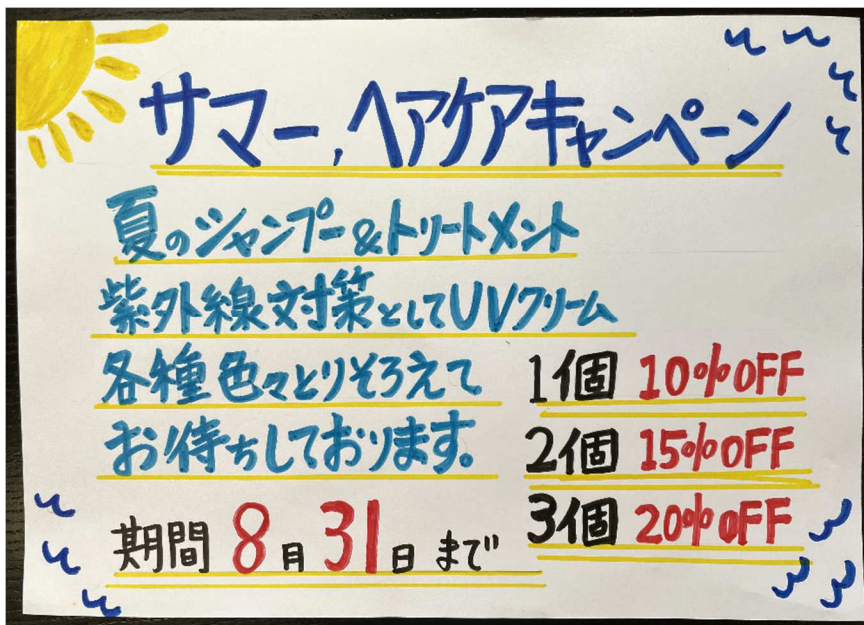 サマー,ヘアケアキャンペーン
夏のシャンプー&トリートメント
紫外線対策としてUVクリーム
各種色々とりそろえて
お待ちしております。
1個 10%OFF
2個 15%OFF
3個 20%OFF
期間 8月31日 まで